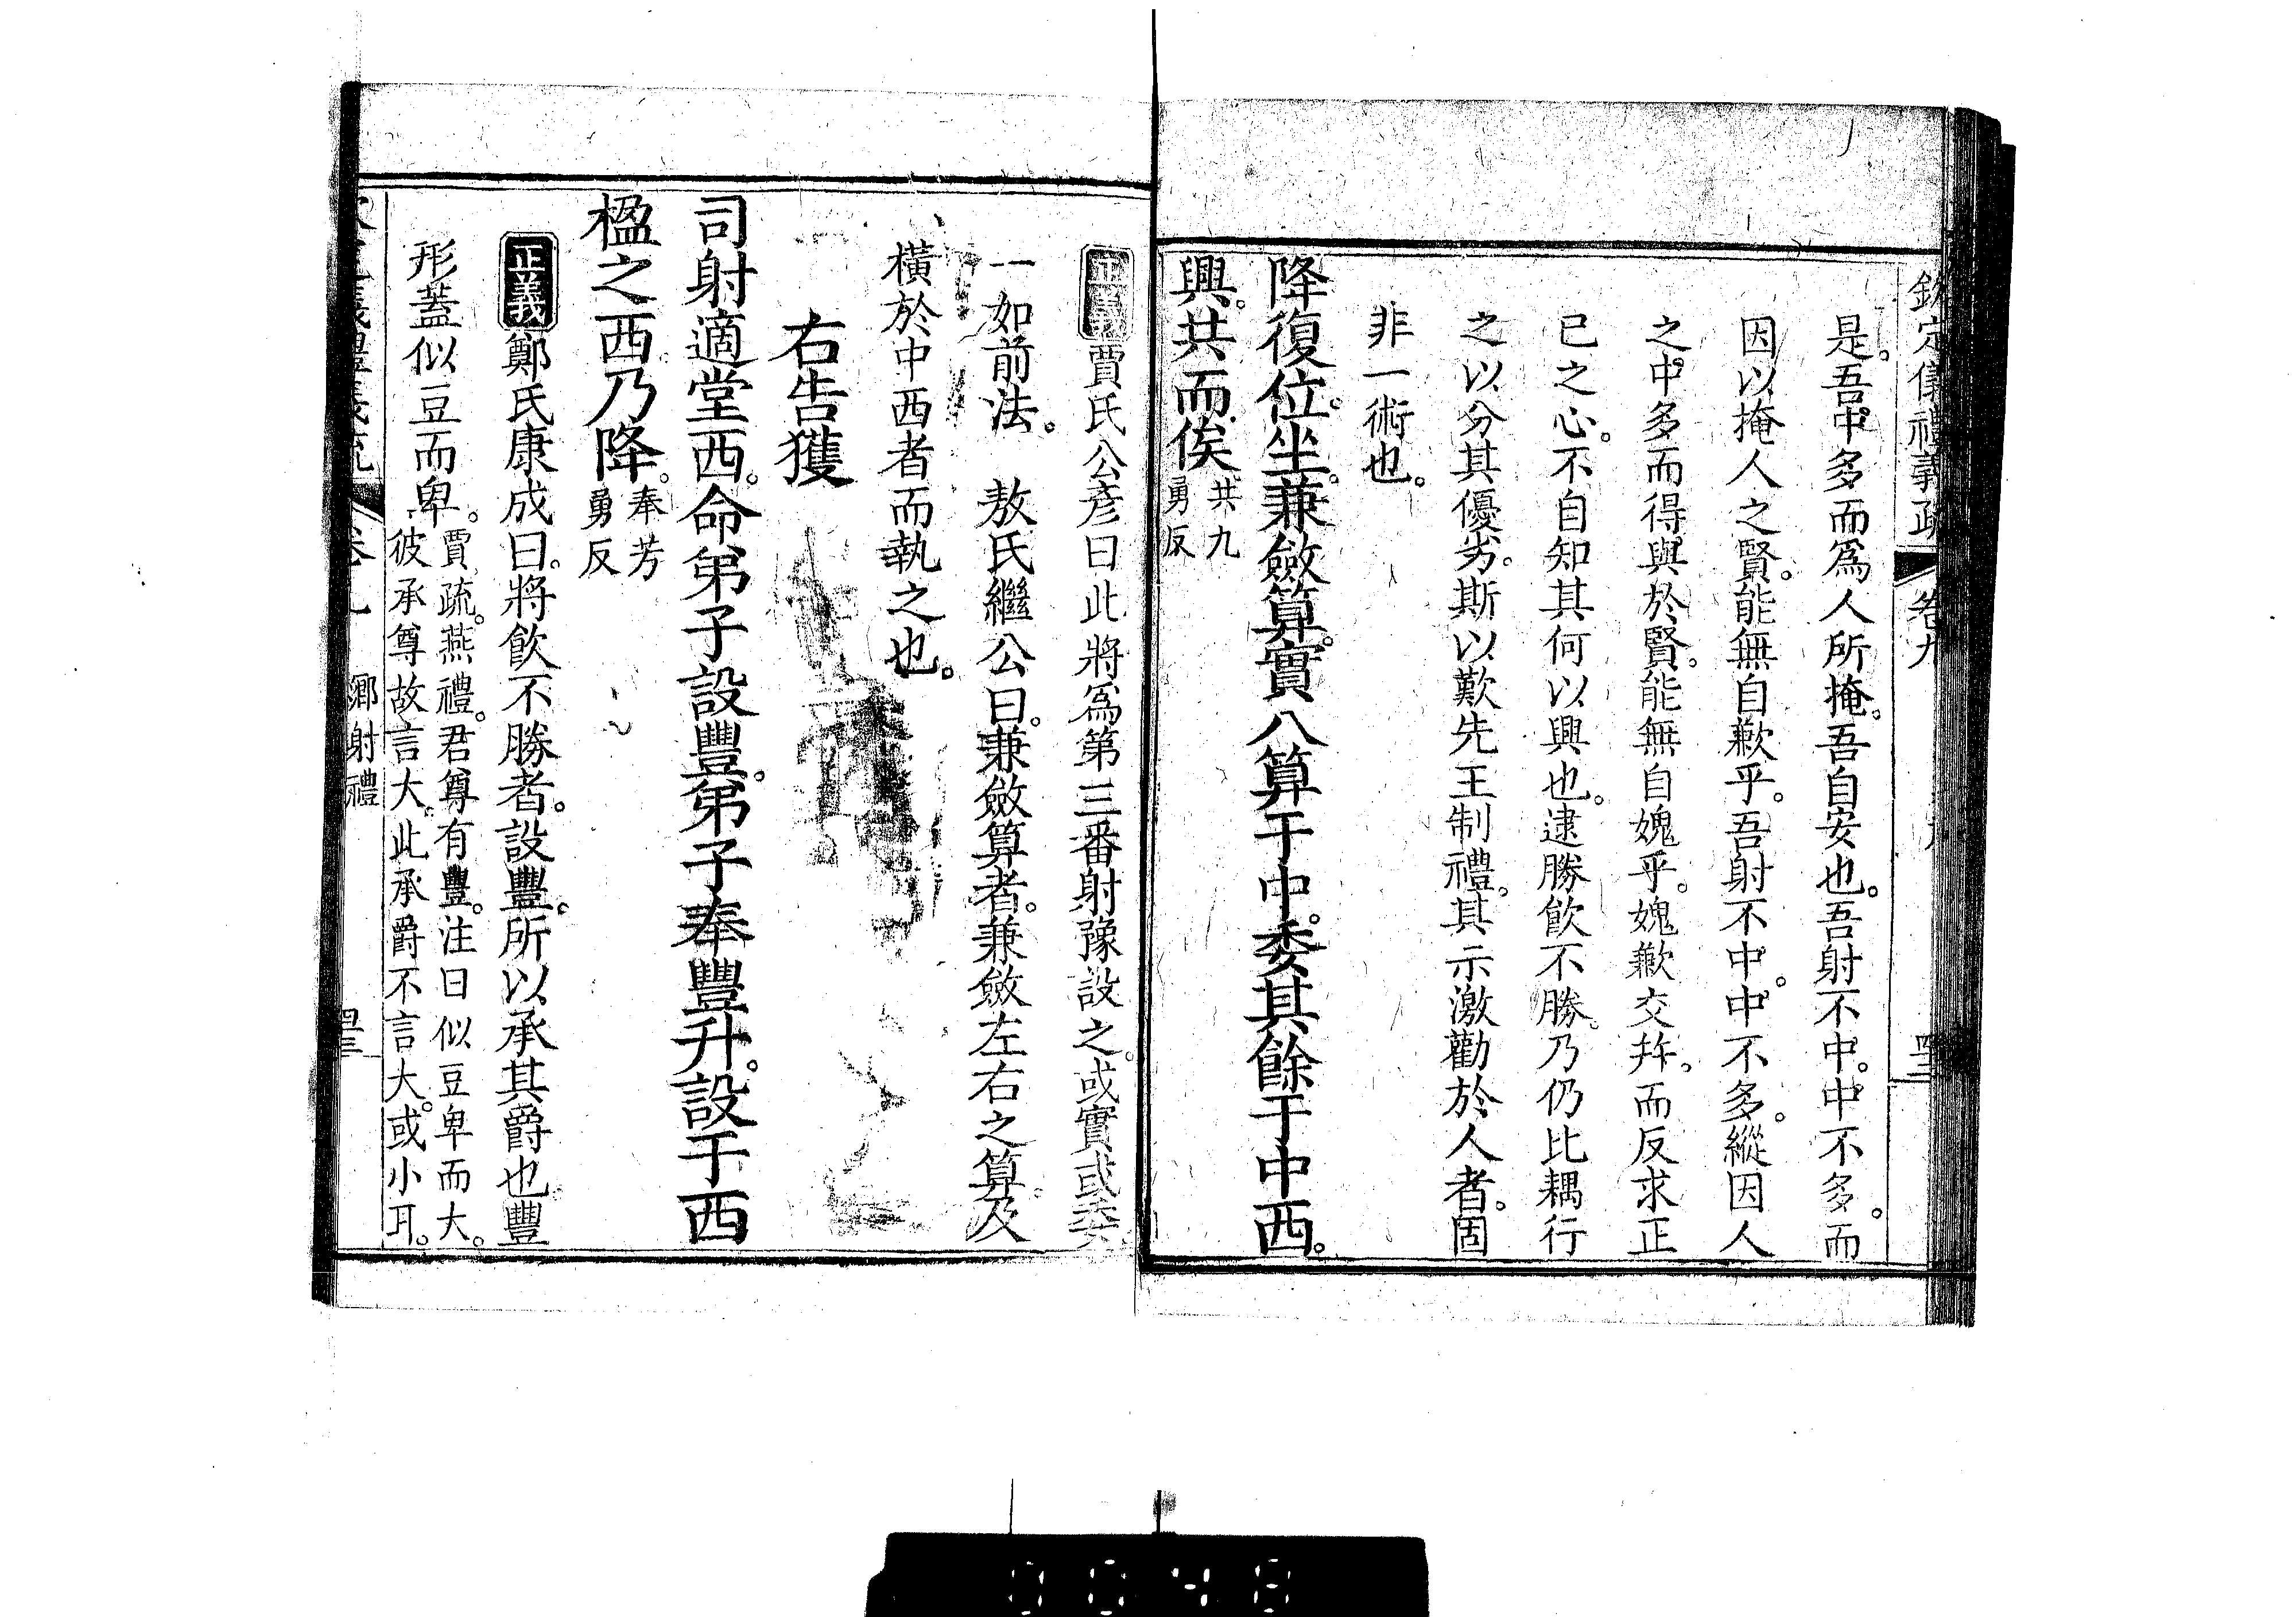 欽定儀禮義疏　卷九
是。吾中多而爲人所掩。吾自安也。吾射不中。中不多。而
因以掩人之賢。能無自歉乎。吾射不中。中不多。縱因人
之中多而得與於賢。能無自媿乎。媿歉交幷。而反求正
已之心。不自知其何以興也。逮勝飮不勝。乃仍比耦行
之以分其優劣。斯以歎先王制禮。其示激勸於人者。固
非一術也。
降復位。坐。兼斂算。實八算于中。委其餘于中西。
興。共而俟。共九勇反
正義賈氏公彥曰此將爲第三番射豫設之。或實或委
一如前法。　敖氏繼公曰。兼斂算者。兼斂左右之算。及
橫於中西者而執之也。
右告獲
司射適堂西。命弟子設豐。弟子奉豐升。設于西
楹之西。乃降。奉芳勇反
正義鄭氏康成曰。將飮不勝者。設豐。所以承其爵也豐
形蓋似豆而卑。賈疏。燕禮。君尊有豐。注曰似豆卑而大。
彼承尊故言大。此承爵不言大。或小耳。
鄉射禮